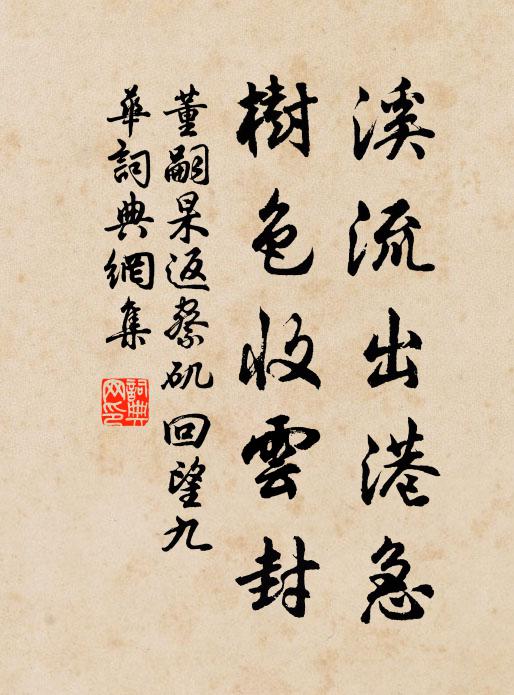 溪流出港急
樹色收雲封
董嗣杲返繫矶回望九
華詞典網集
詞典
网印